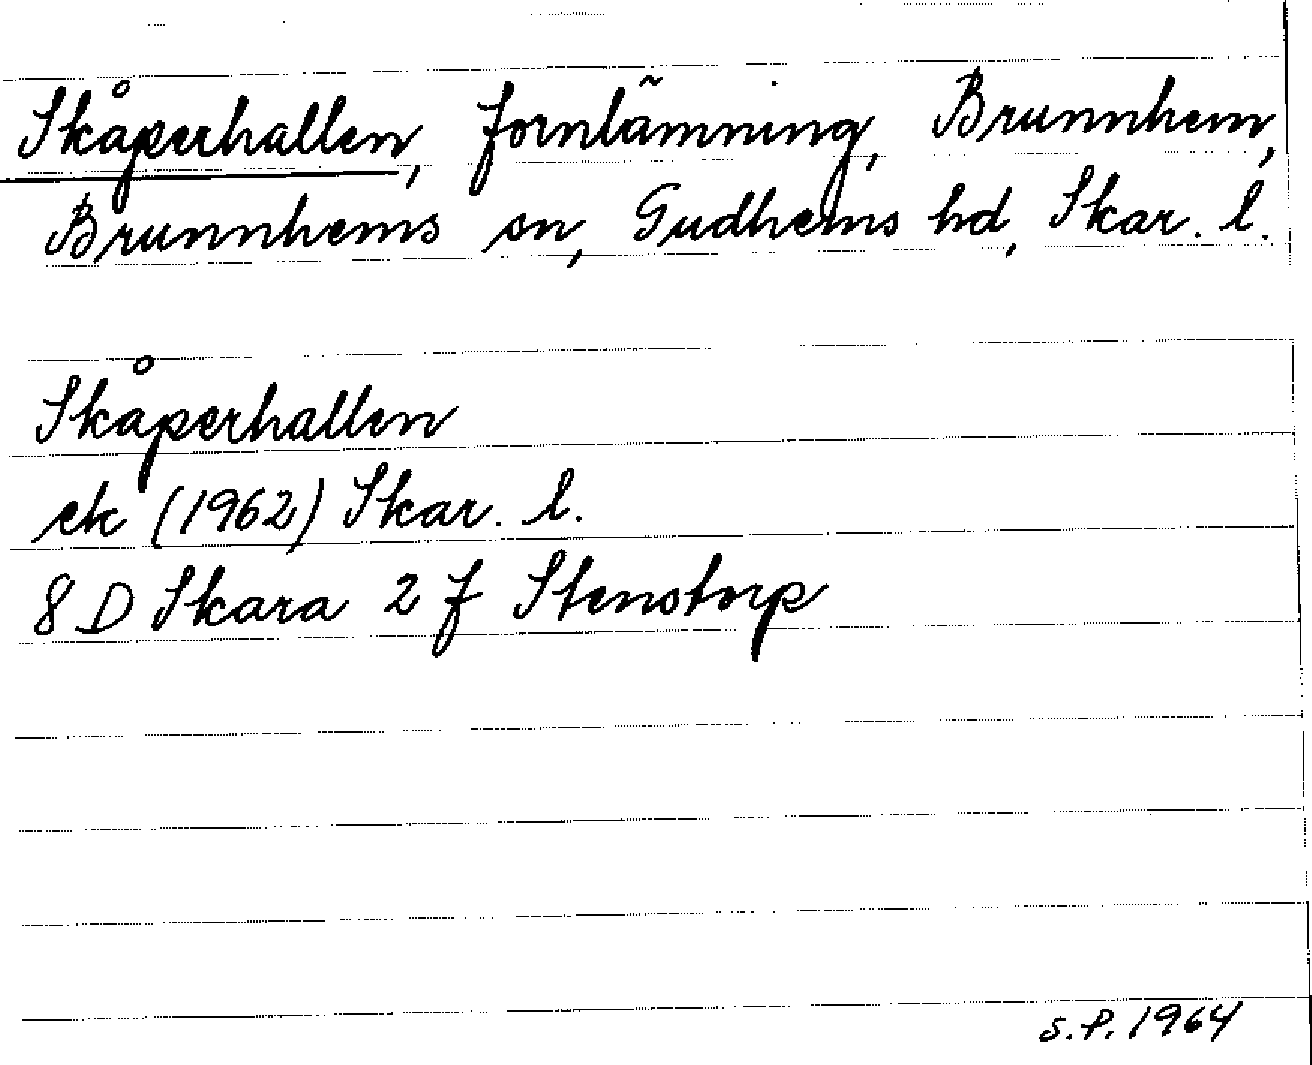 Skåperhallen, fornlämning, Brunnhem,
Brunnhems sn, Gudhems hd, Skar. l.
Skåperhallen
ek (1962) Skar. l.
8 D Skara 2 f Stenstorp
S.P. 1964